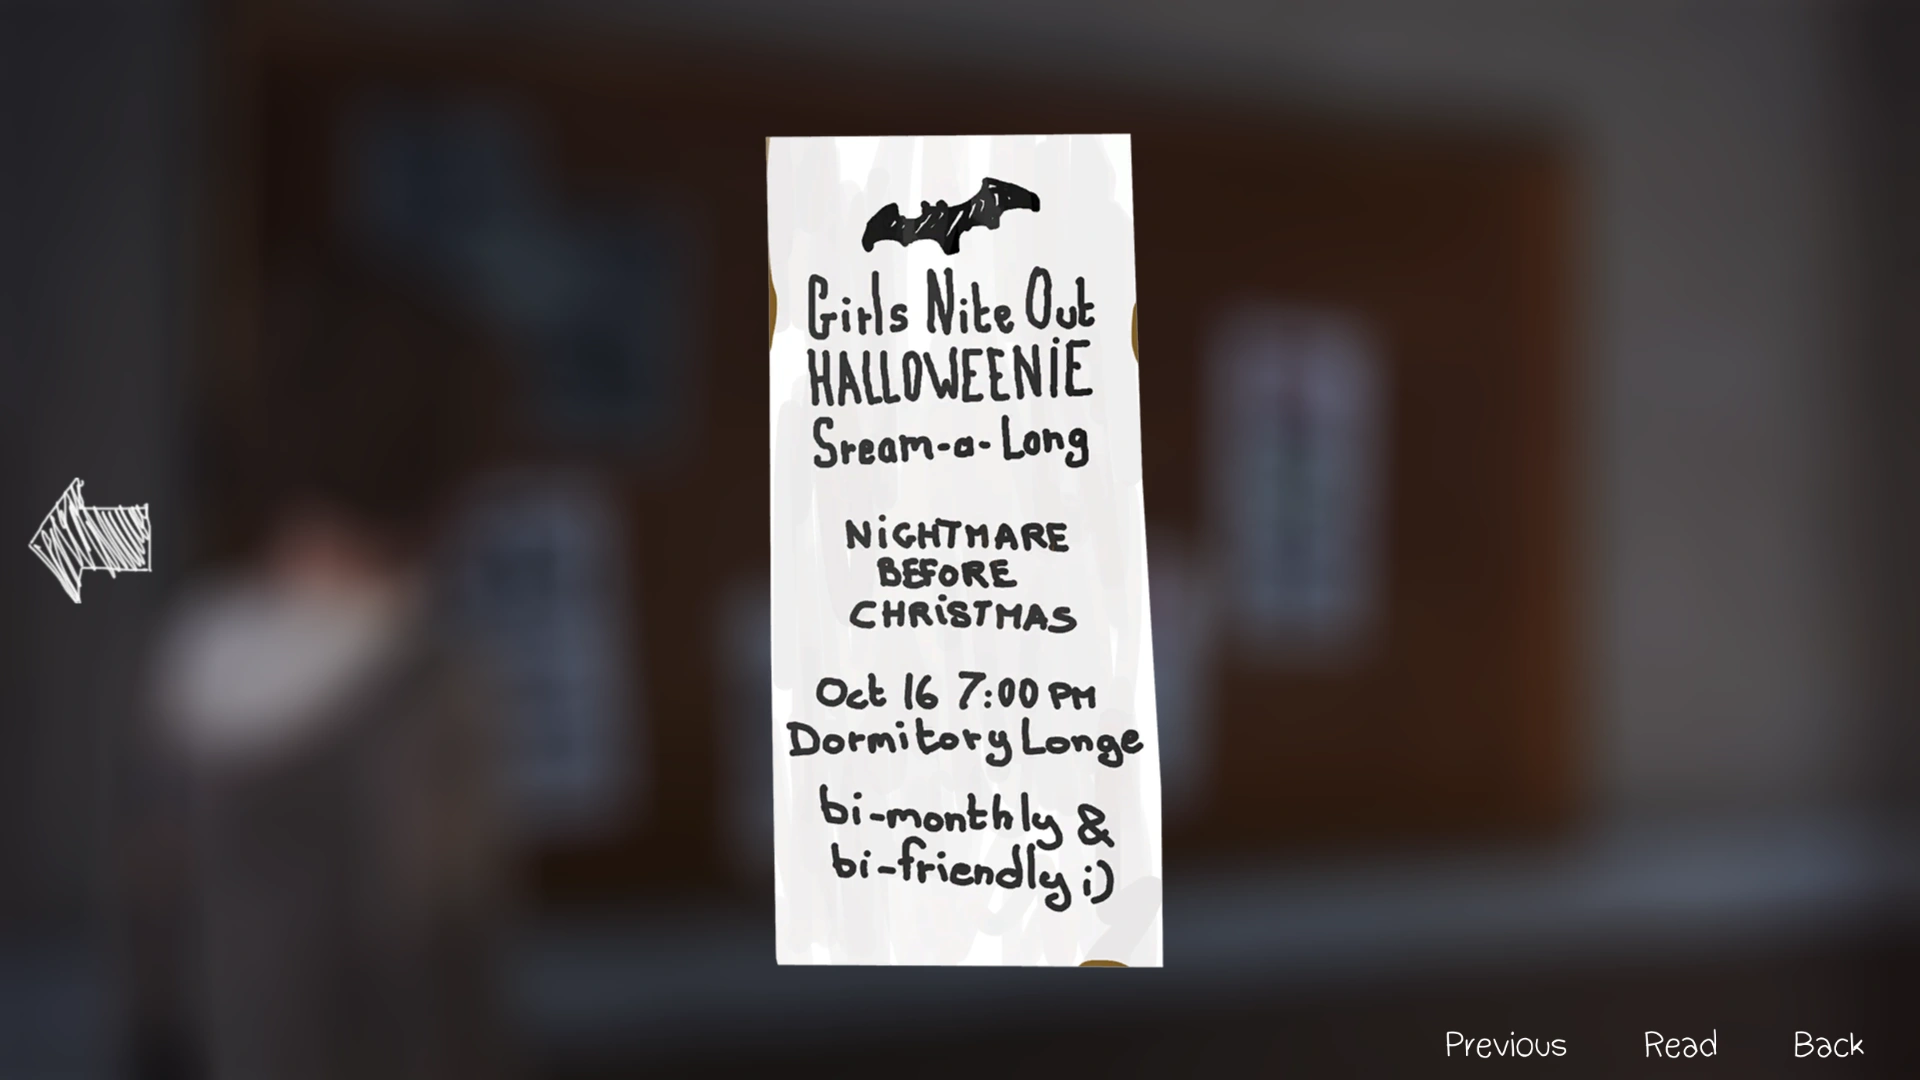 Girls Nite Out
HALLOWEENiE
Sream-a-Long
NiGHTMARE
BEFORE
CHRiSTMAS
Oct 16 7:00 PM
Dormitory Longe
bi-monthly &
bi-friendly ;)
Previous Read Back